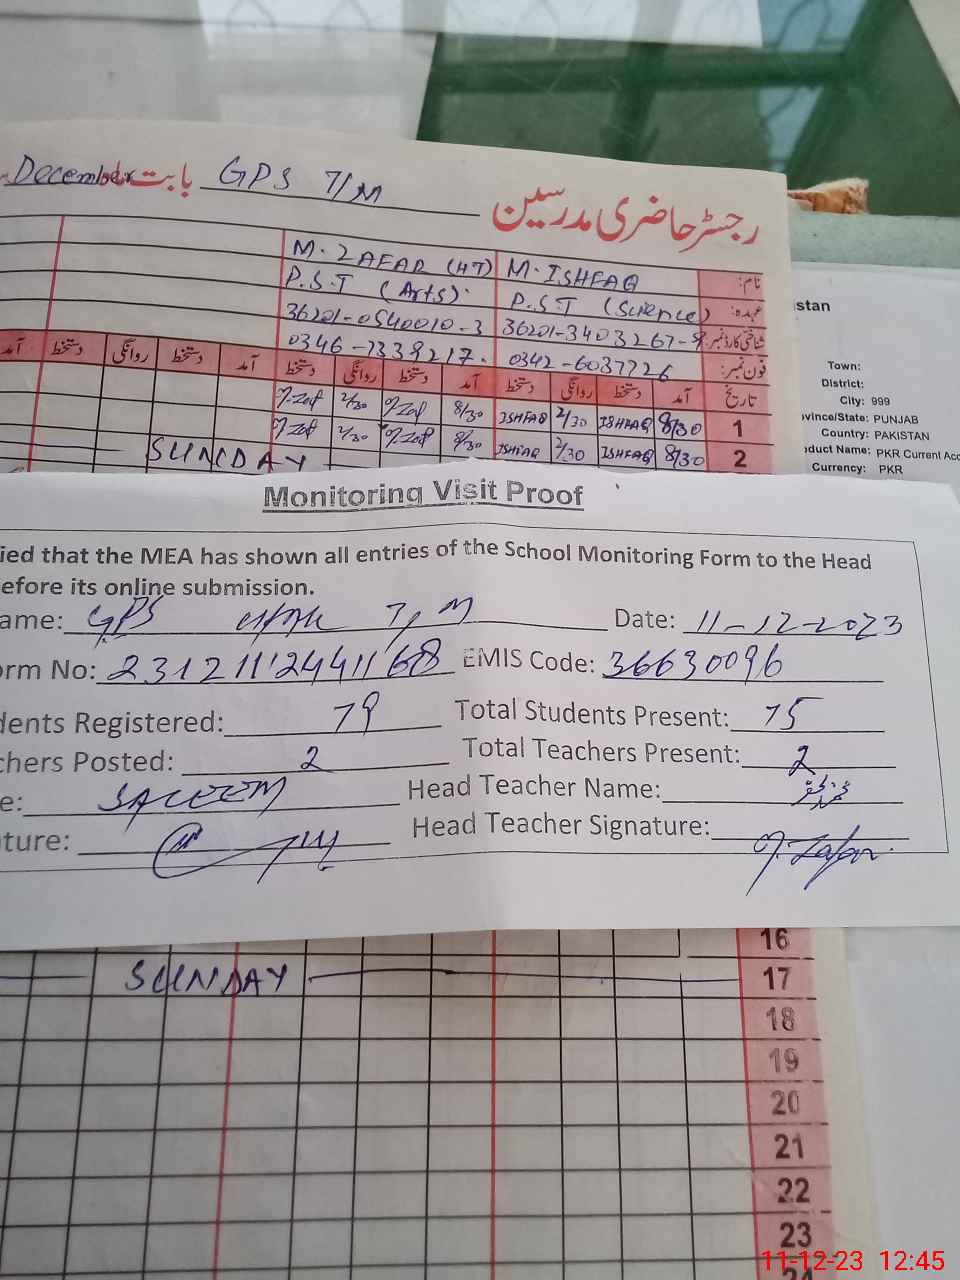 December بابت GPS 7/M
رجسٹر حاضری مدرسین
M. ZAFAR (HT) M. ISHFAQ نام:
P.S.T (Arts). P.S.T (Science) عہدہ:
36201-0540010-3 36201-3403267-9 شناختی کارڈ نمبر:
0346-7339217. 0342-6037726 فون نمبر:
آمد دستخط روانگی دستخط آمد دستخط روانگی دستخط آمد دستخط روانگی دستخط آمد تاریخ
M.Zaf 2/30 M.Zaf 8/30 ISHFAQ 2/30 ISHFAQ 8/30 1
M.Zaf 2/30 M.Zaf 8/30 ISHFAQ 2/30 ISHFAQ 8/30 2
SUNDAY
stan
Town:
District:
City: 999
vince/State: PUNJAB
Country: PAKISTAN
duct Name: PKR Current Acc
Currency: PKR
Monitoring Visit Proof
ied that the MEA has shown all entries of the School Monitoring Form to the Head
efore its online submission.
ame: GPS 7/M Date: 11-12-2023
orm No: EMIS Code: 36630096
dents Registered: 79 Total Students Present: 75
chers Posted: 2 Total Teachers Present: 2
e: SALEEM Head Teacher Name: محمد ظفر
ture: Head Teacher Signature: M.Zafar
16
SUNDAY 17
18
19
20
21
22
23
24
11-12-23 12:45